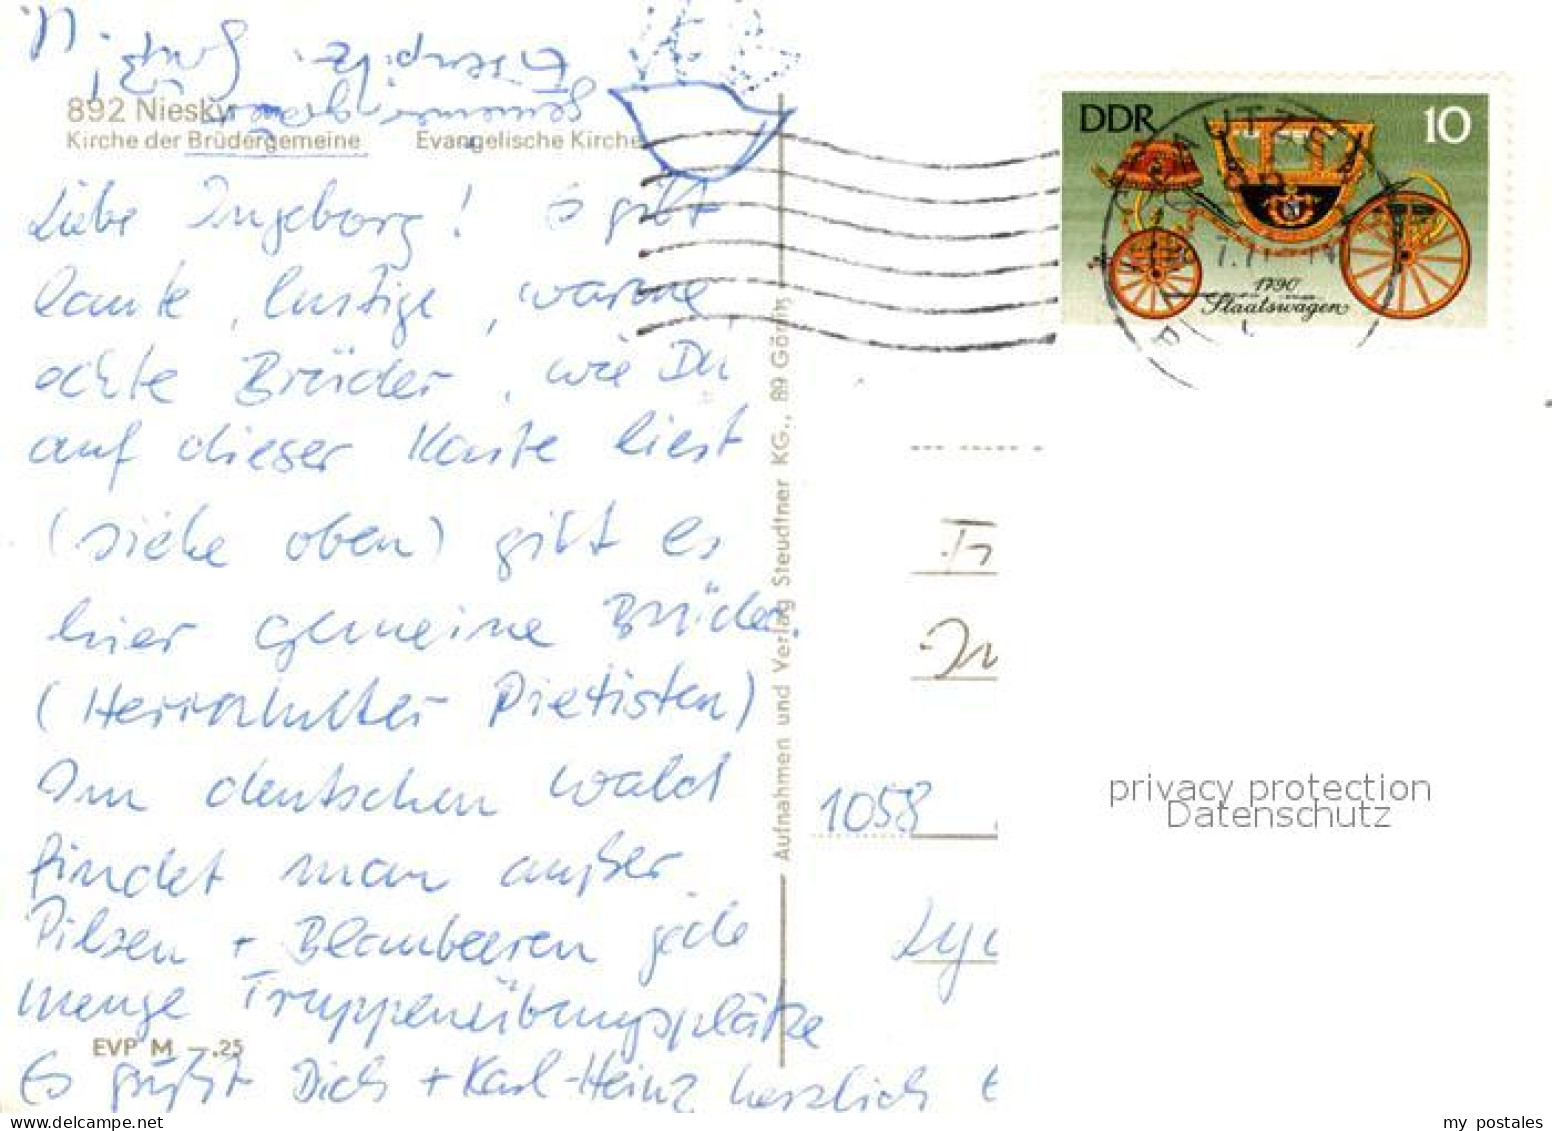 892 Niesky
Kirche der Brüdergemeine Evangelische Kirche
Liebe Ingeborg! Es gibt
laute, lustige, warme,
echte Brüder, wie Du
auf dieser Karte liest
(siehe oben) gibt es
hier gemeine Brüder.
(Herrnhuter Pietisten)
Im deutschen Wald
findet man außer
Pilzen + Blaubeeren jede
Menge Truppenübungsplätze
EVP M —.25
Es grüßt Dich + Karl-Heinz herzlich
Aufnahmen und Verlag Steudtner KG., 89 Görlitz
DDR 10
1790
Staatswagen
1058
privacy protection
Datenschutz
my postales